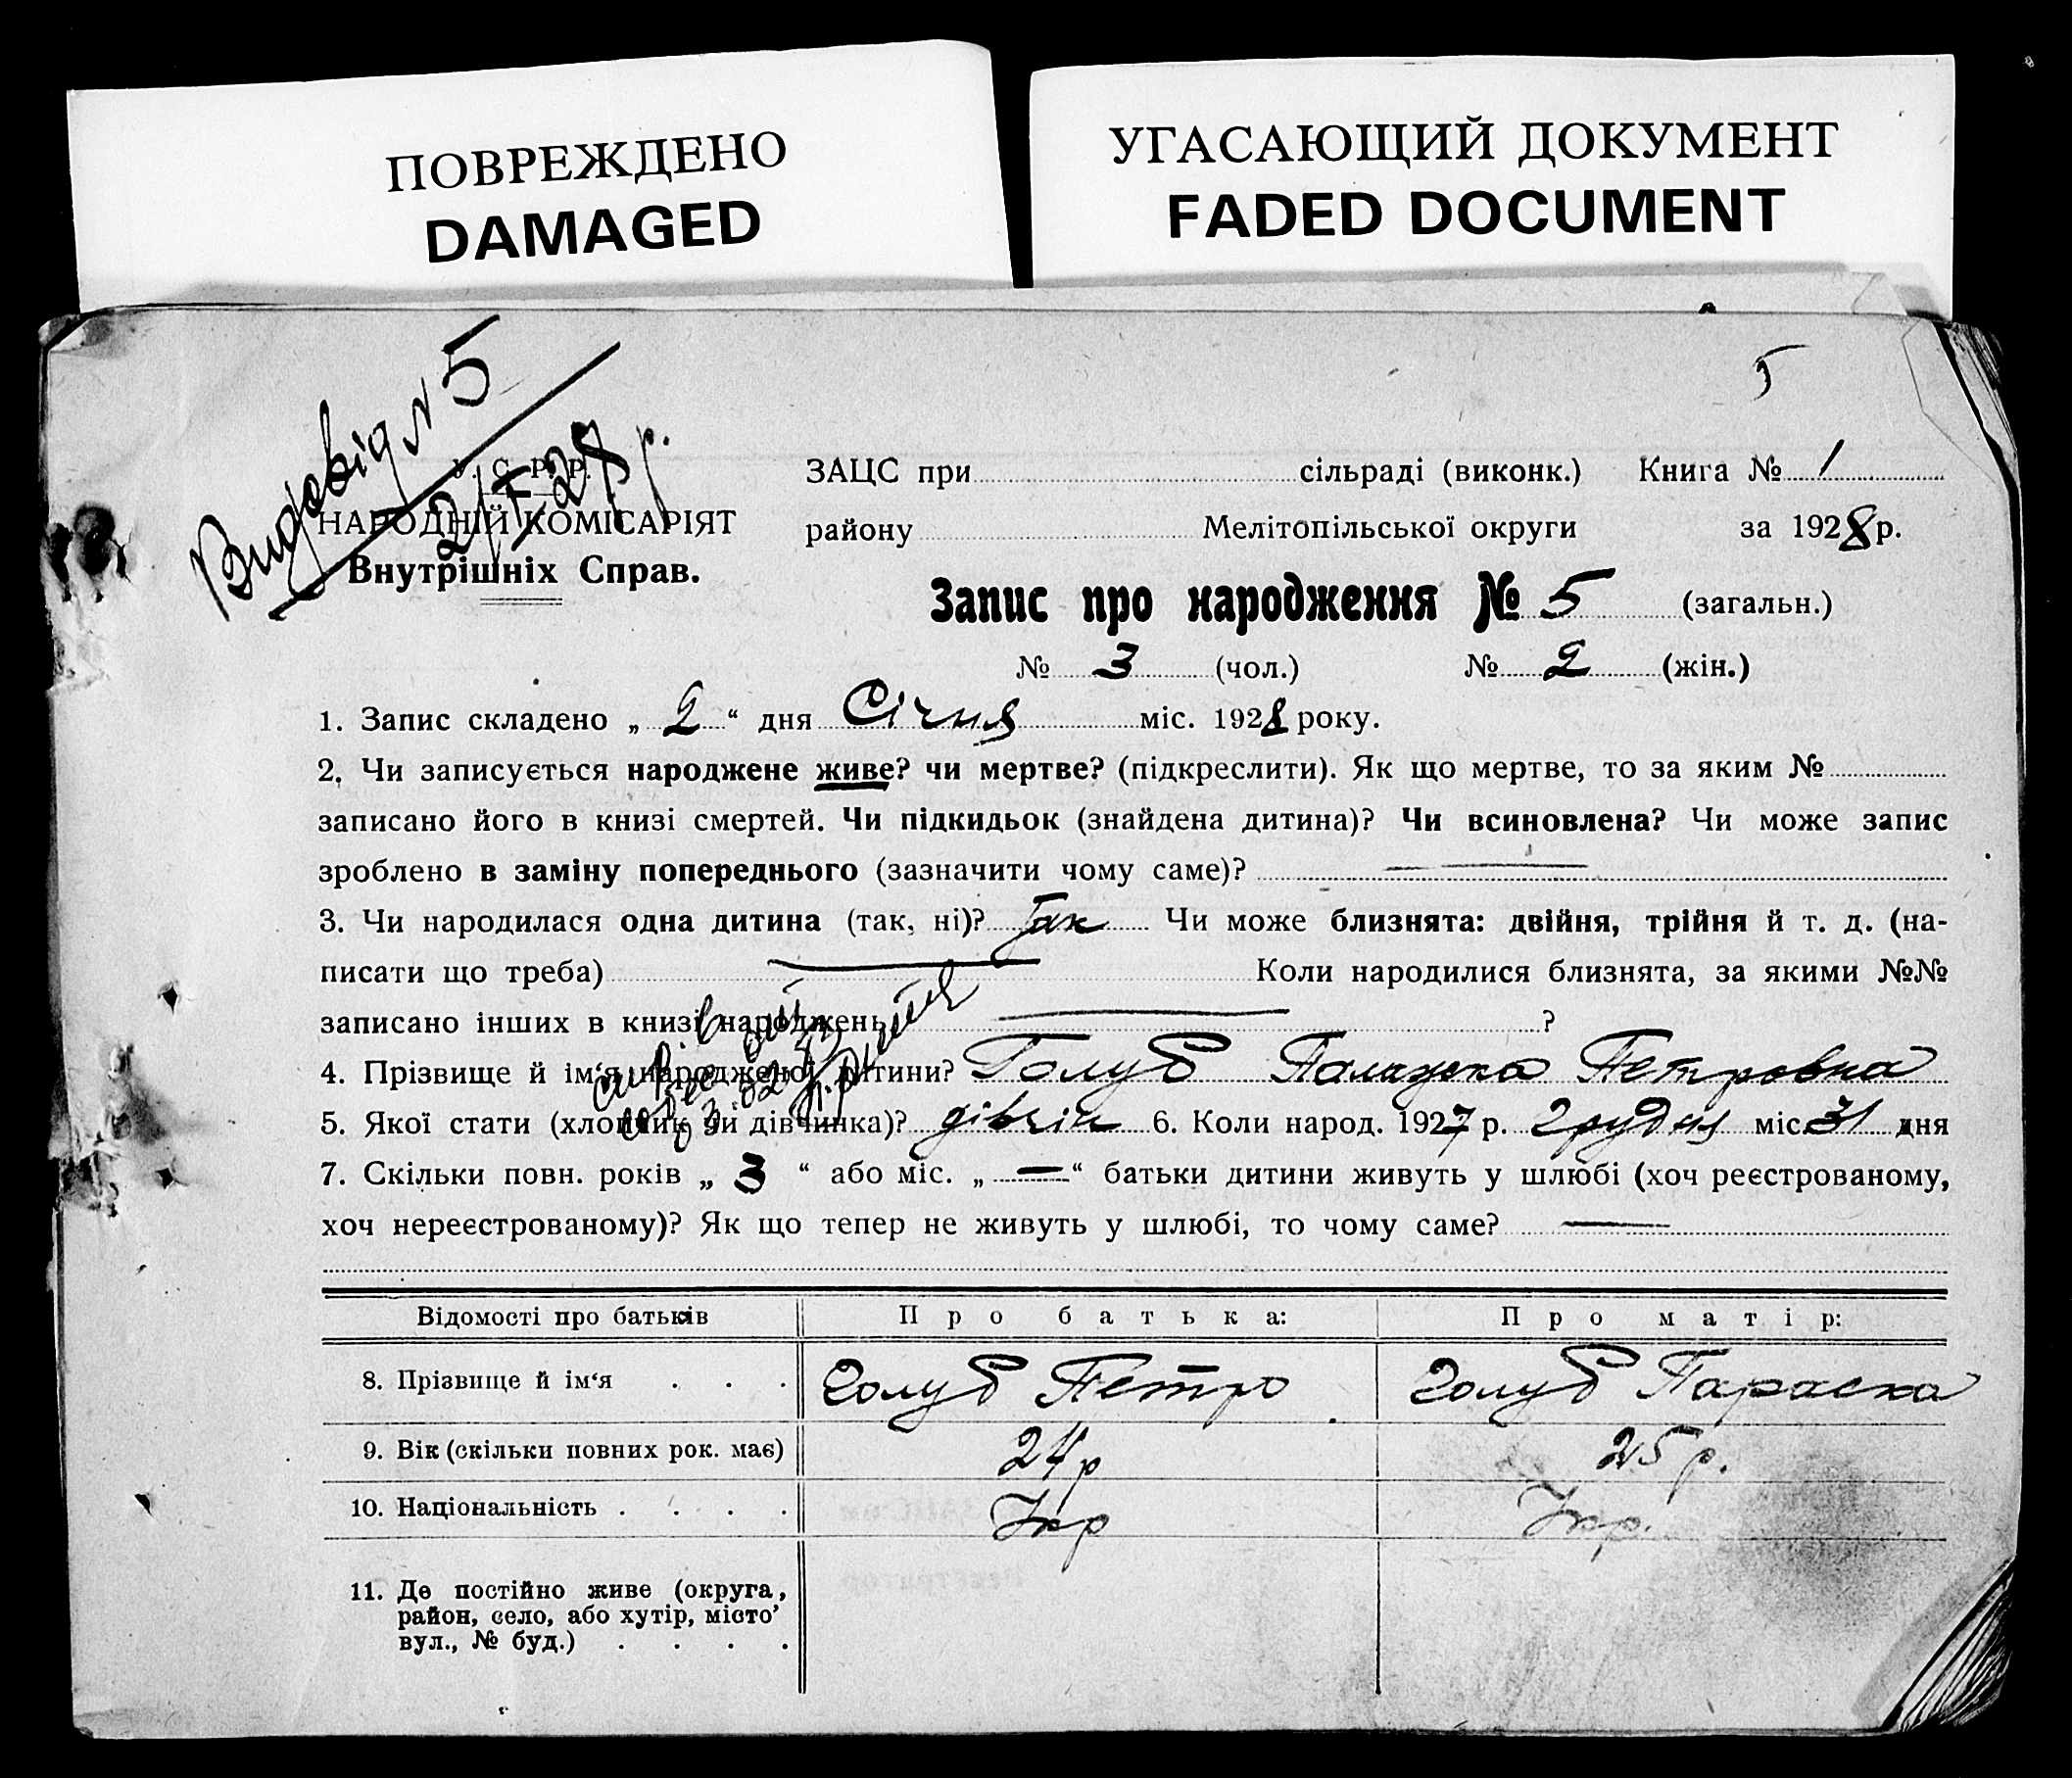 ПОВРЕЖДЕНО
DAMAGED
УГАСАЮЩИЙ ДОКУМЕНТ
FADED DOCUMENT
5
Видовід N 5
2/I-28 р.
У. С. Р. Р.
НАРОДНІЙ КОМІСАРІЯТ
Внутрішніх Справ.
ЗАЦС при сільраді (виконк.) Книга № 1
району Мелітопільської округи за 1928 р.
Запис про народження № 5 (загальн.)
№ 3 (чол.) № 2 (жін.)
1. Запис складено „ 2 “ дня Січня міс. 1928 року.
2. Чи записується народжене живе? чи мертве? (підкреслити). Як що мертве, то за яким №
записано його в книзі смертей. Чи підкидьок (знайдена дитина)? Чи всиновлена? Чи може запис
зроблено в заміну попереднього (зазначити чому саме)? —
3. Чи народилася одна дитина (так, ні)? Так Чи може близнята: двійня, трійня й т. д. (на-
писати що треба) — Коли народилися близнята, за якими №№
записано інших в книзі народжень — ?
4. Прізвище й ім‘я народженої дитини? Голуб Палазека Петровна
5. Якої стати (хлопчик чи дівчинка)? дівчін 6. Коли народ. 1927 р. Грудня міс. 31 дня
7. Скільки повн. років „ 3 “ або міс. „ — “ батьки дитини живуть у шлюбі (хоч реєстрованому,
хоч нереєстрованому)? Як що тепер не живуть у шлюбі, то чому саме? —
Відомості про батьків Про батька: Про матір:
8. Прізвище й ім‘я . . . Голуб Петро Голуб Параска
9. Вік (скільки повних рок. має) 24 р 25 р.
10. Національність . . . . Укр Укр.
11. Де постійно живе (округа,
район, село, або хутір, місто’
вул., № буд.) . . . .